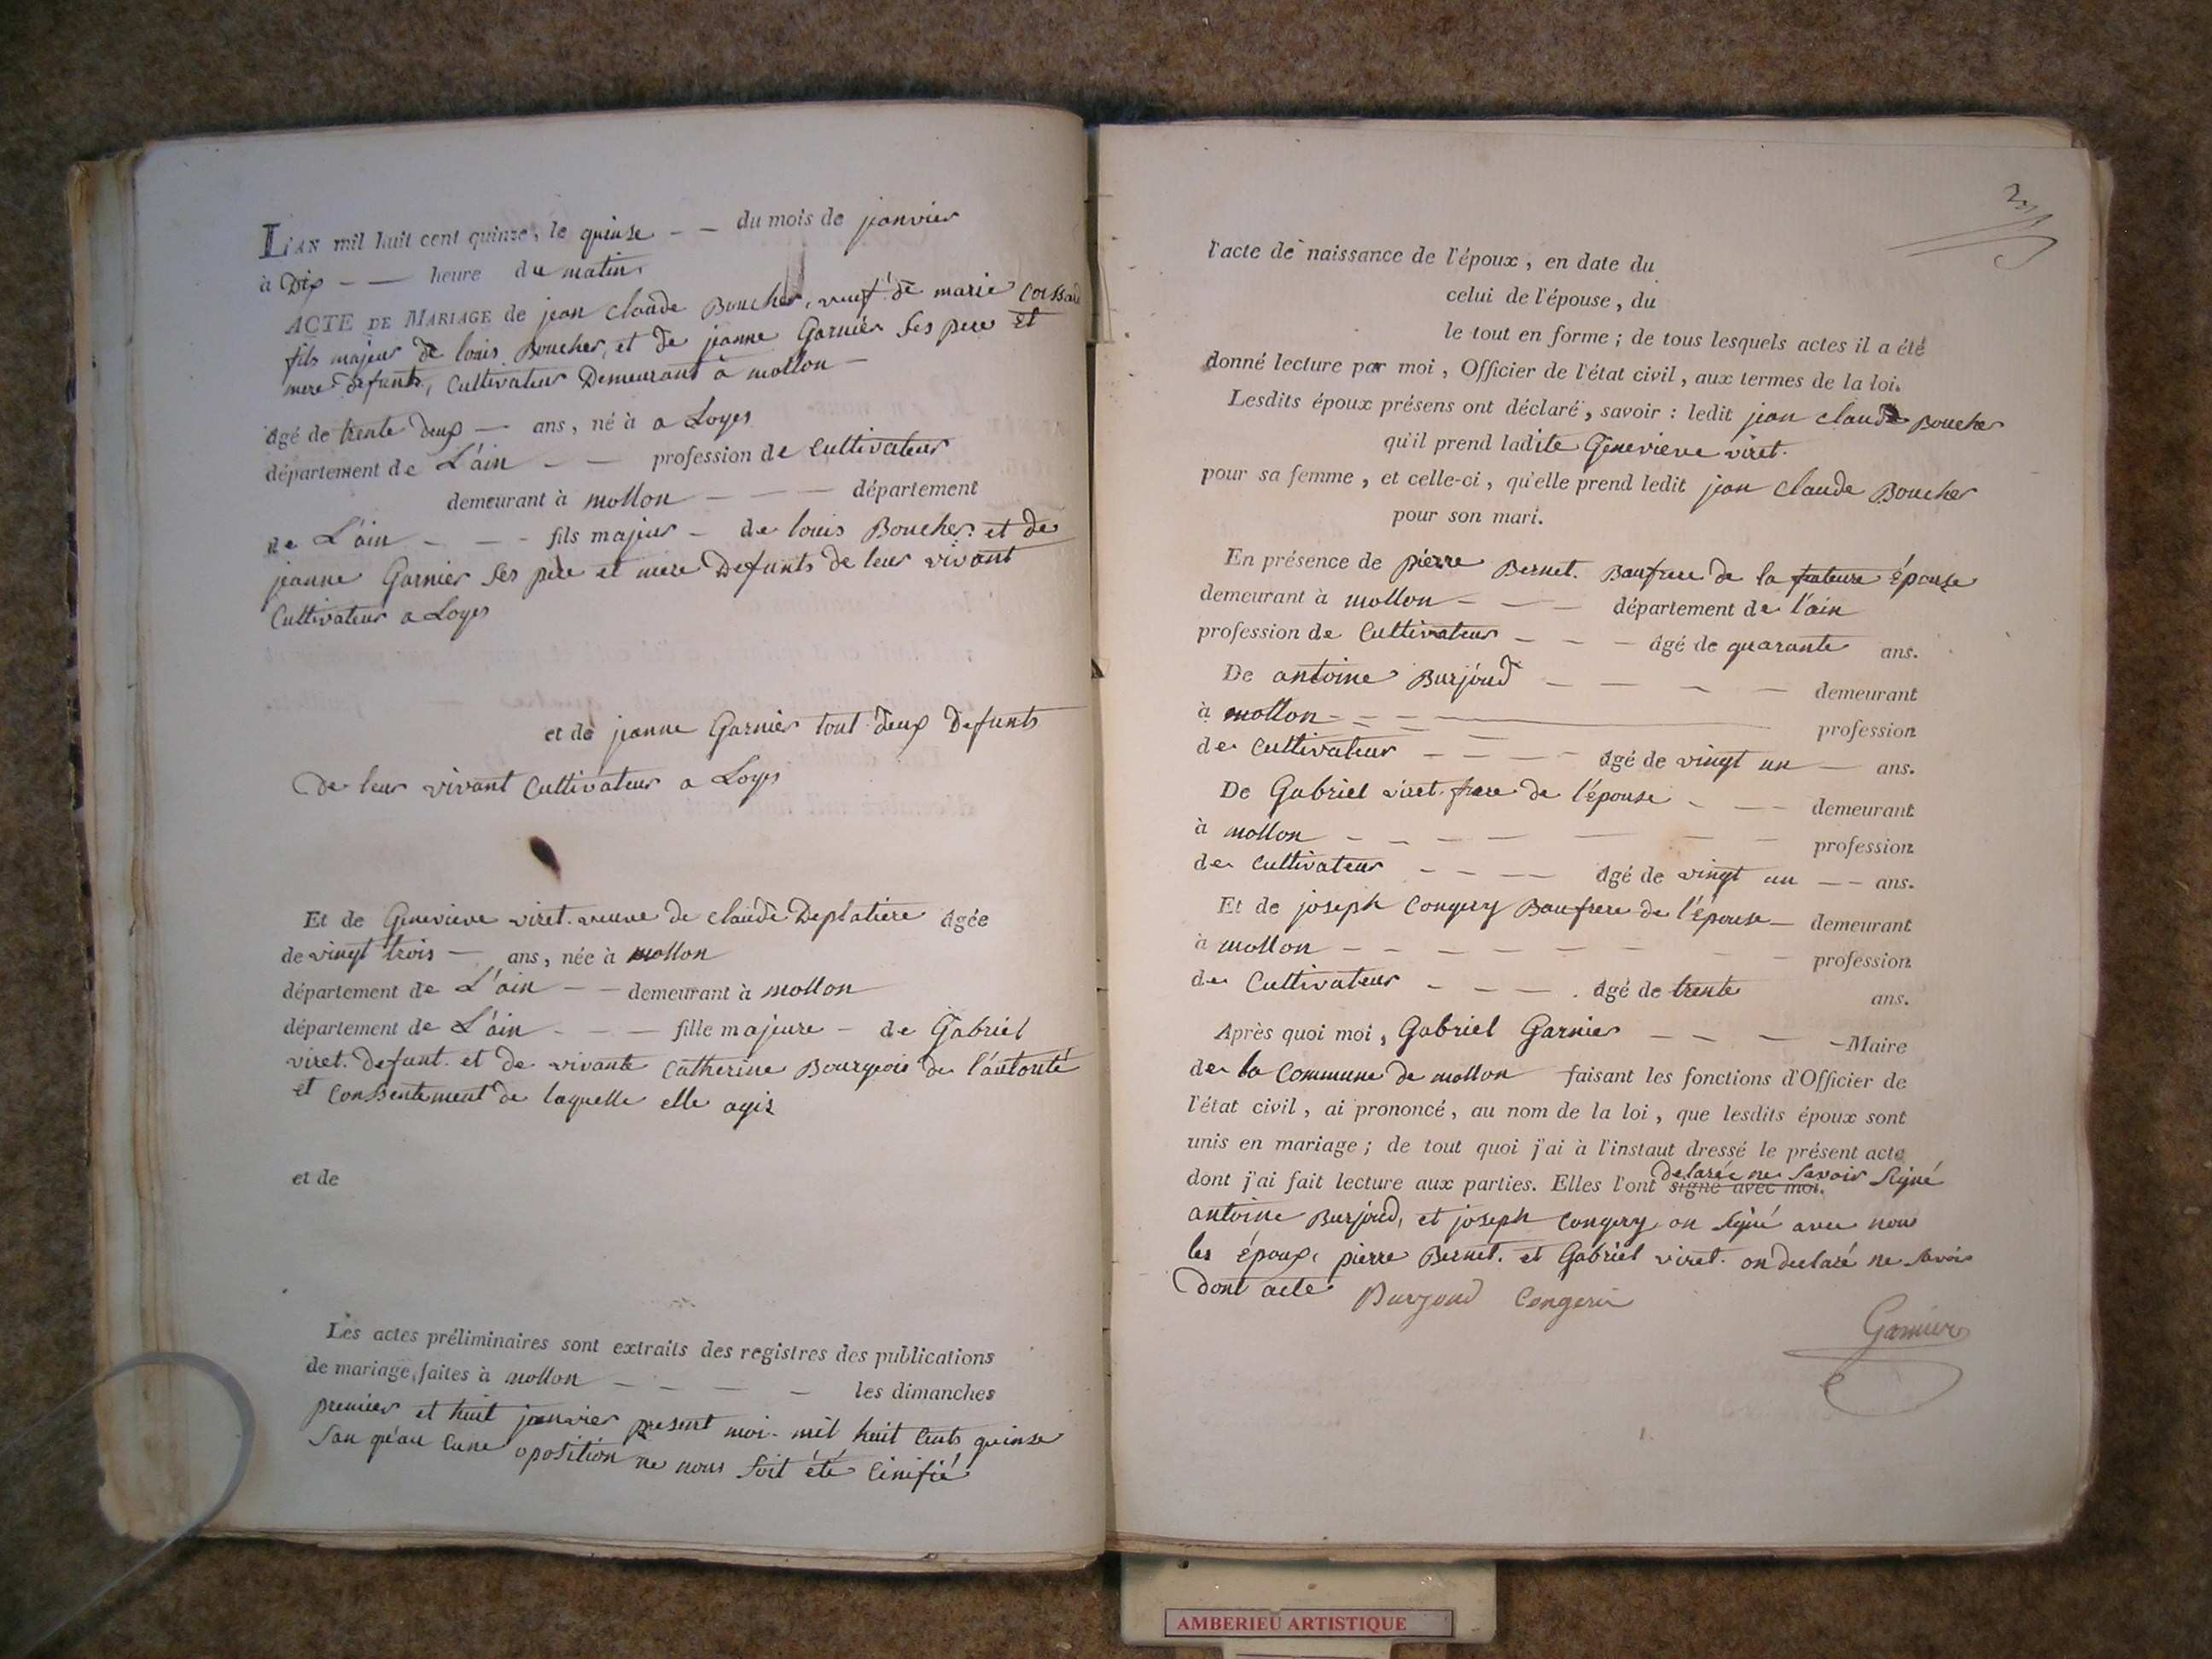 L'AN mil huit cent quinze, le quinse - - du mois de janvier
à Dix - - heure du matin.
ACTE DE MARIAGE de jean claude Boucher, veuf de marie Cossard
fils majeur de louis Boucher, et de jeanne Garnier Ses pere Et
mere defunts, Cultivateur Demeurant à mollon -
âgé de trente deux - ans, né à a Loyes
département de L'ain - - profession de Cultivateur
demeurant à mollon - - - département
de L'ain - - - fils majeur - de louis Boucher et de
jeanne Garnier Ses père et mere Defunts de leur vivant
Cultivateur a Loyes
et de jeanne Garnier tout deux Defunts
De leur vivant Cultivateur a Loyes
Et de Genevieve viret. veuve de claude Deplatiere âgée
de vingt trois - ans, née à mollon
département de L'ain - - demeurant à mollon
département de L'ain - - - fille majeure - de Gabriel
viret. Defunt. et de vivante Catherine Bourgeois de l'autorité
et Consentement de laquelle elle agis
et de
Les actes préliminaires sont extraits des registres des publications
de mariage, faites à mollon - - - - les dimanches
premier et huit janvier present moi. mil huit Cents quinse
San qu'au Cune oposition ne nous Soit été Cinifié
l'acte de naissance de l'époux, en date du
celui de l'épouse, du
le tout en forme; de tous lesquels actes il a été
donné lecture par moi, Officier de l'état civil, aux termes de la loi.
Lesdits époux présens ont déclaré, savoir: ledit jean claude Boucher
qu'il prend ladite Genevieve viret.
pour sa femme, et celle-ci, qu'elle prend ledit jean Claude Boucher
pour son mari.
En présence de pierre Bernet. Baufrere de la future Épouse
demeurant à mollon - - - département de l'ain
profession de Cultivateur - - - âgé de quarante ans.
De antoine Burjoud - - - - demeurant
à mollon - - - profession
de Cultivateur - - - - âgé de vingt un - ans.
De Gabriel viret. frere de l'épouse - - - demeurant
à mollon - - - - - - - profession
de Cultivateur - - - - âgé de vingt un - - ans.
Et de joseph Congery Baufrere de l'Epouse - demeurant
à mollon - - - - - - - - profession
de Cultivateur - - - . âgé de trente ans.
Après quoi moi, Gabriel Garnier - - - - Maire
de la Commune de mollon faisant les fonctions d'Officier de
l'état civil, ai prononcé, au nom de la loi, que lesdits époux sont
unis en mariage; de tout quoi j'ai à l'instaut dressé le présent acte
dont j'ai fait lecture aux parties. Elles l'ont signé avec moi. Delarée ne Savoir Signé
antoine Burjoud, et joseph Congery on Signé avec nous
les Époux, pierre Bernet. et Gabriel viret. on declaré ne Savoir
Dont acte Burjoud Congeri
Garnier
AMBERIEU ARTISTIQUE